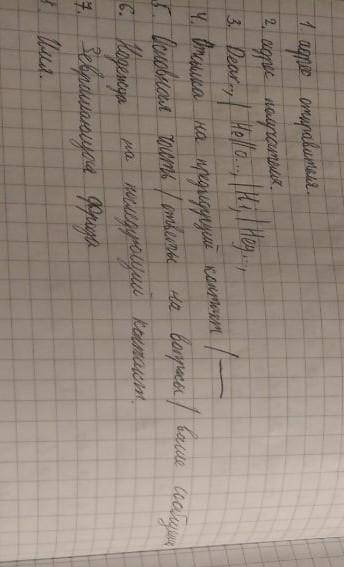 1 адрес отправителя.
2. адрес получателя.
3. Dear..., / Hello..., / Hi, / Hey...,
4. Отсылка на предыдущий контакт / —
5. Основная часть / ответы на вопросы / ваше сообщение
6. Надежда на последующий контакт.
7. Завершающая фраза
8 Имя.